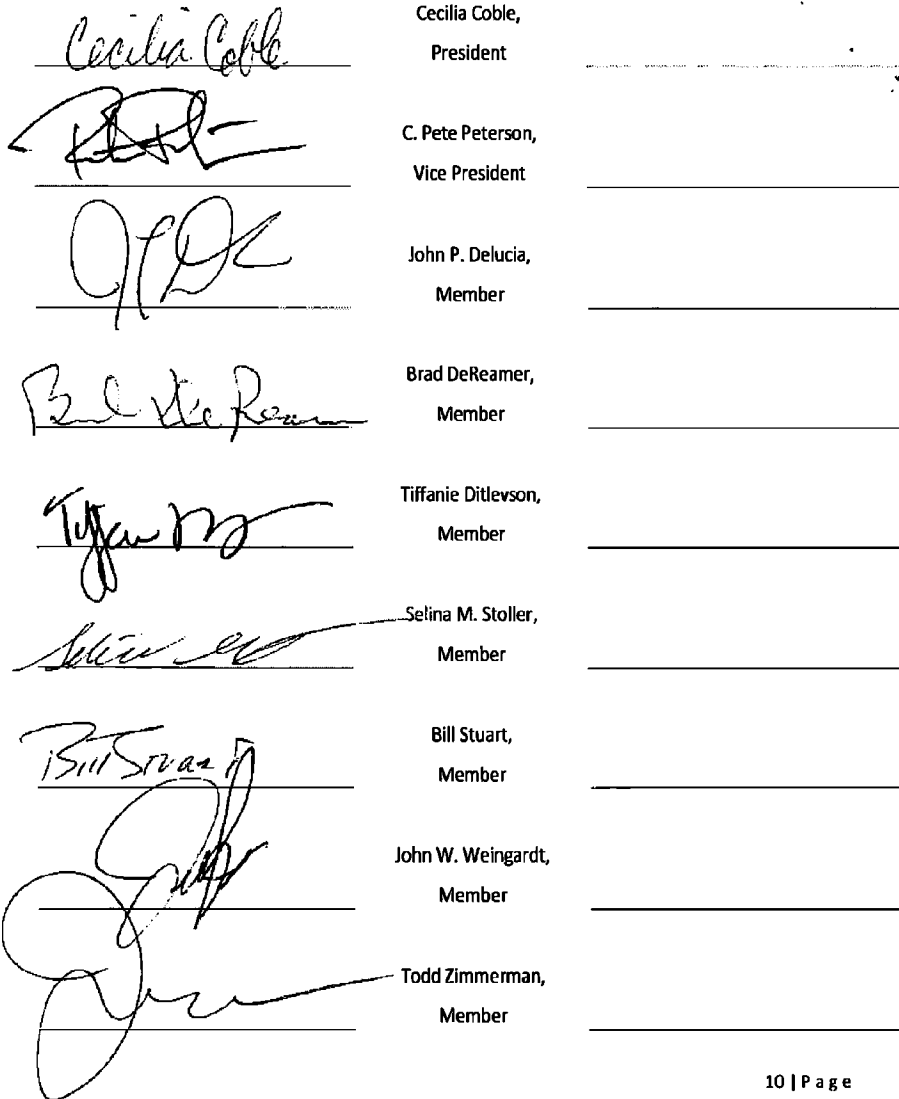 Cecilia Coble
Cecilia Coble,
President
C. Pete Peterson,
Vice President
John P. Delucia,
Member
Brad DeReamer,
Member
Tiffanie Ditlevson,
Member
Selina M. Stoller,
Member
Bill Stuart
Bill Stuart,
Member
John W. Weingardt,
Member
Todd Zimmerman,
Member
10 | P a g e